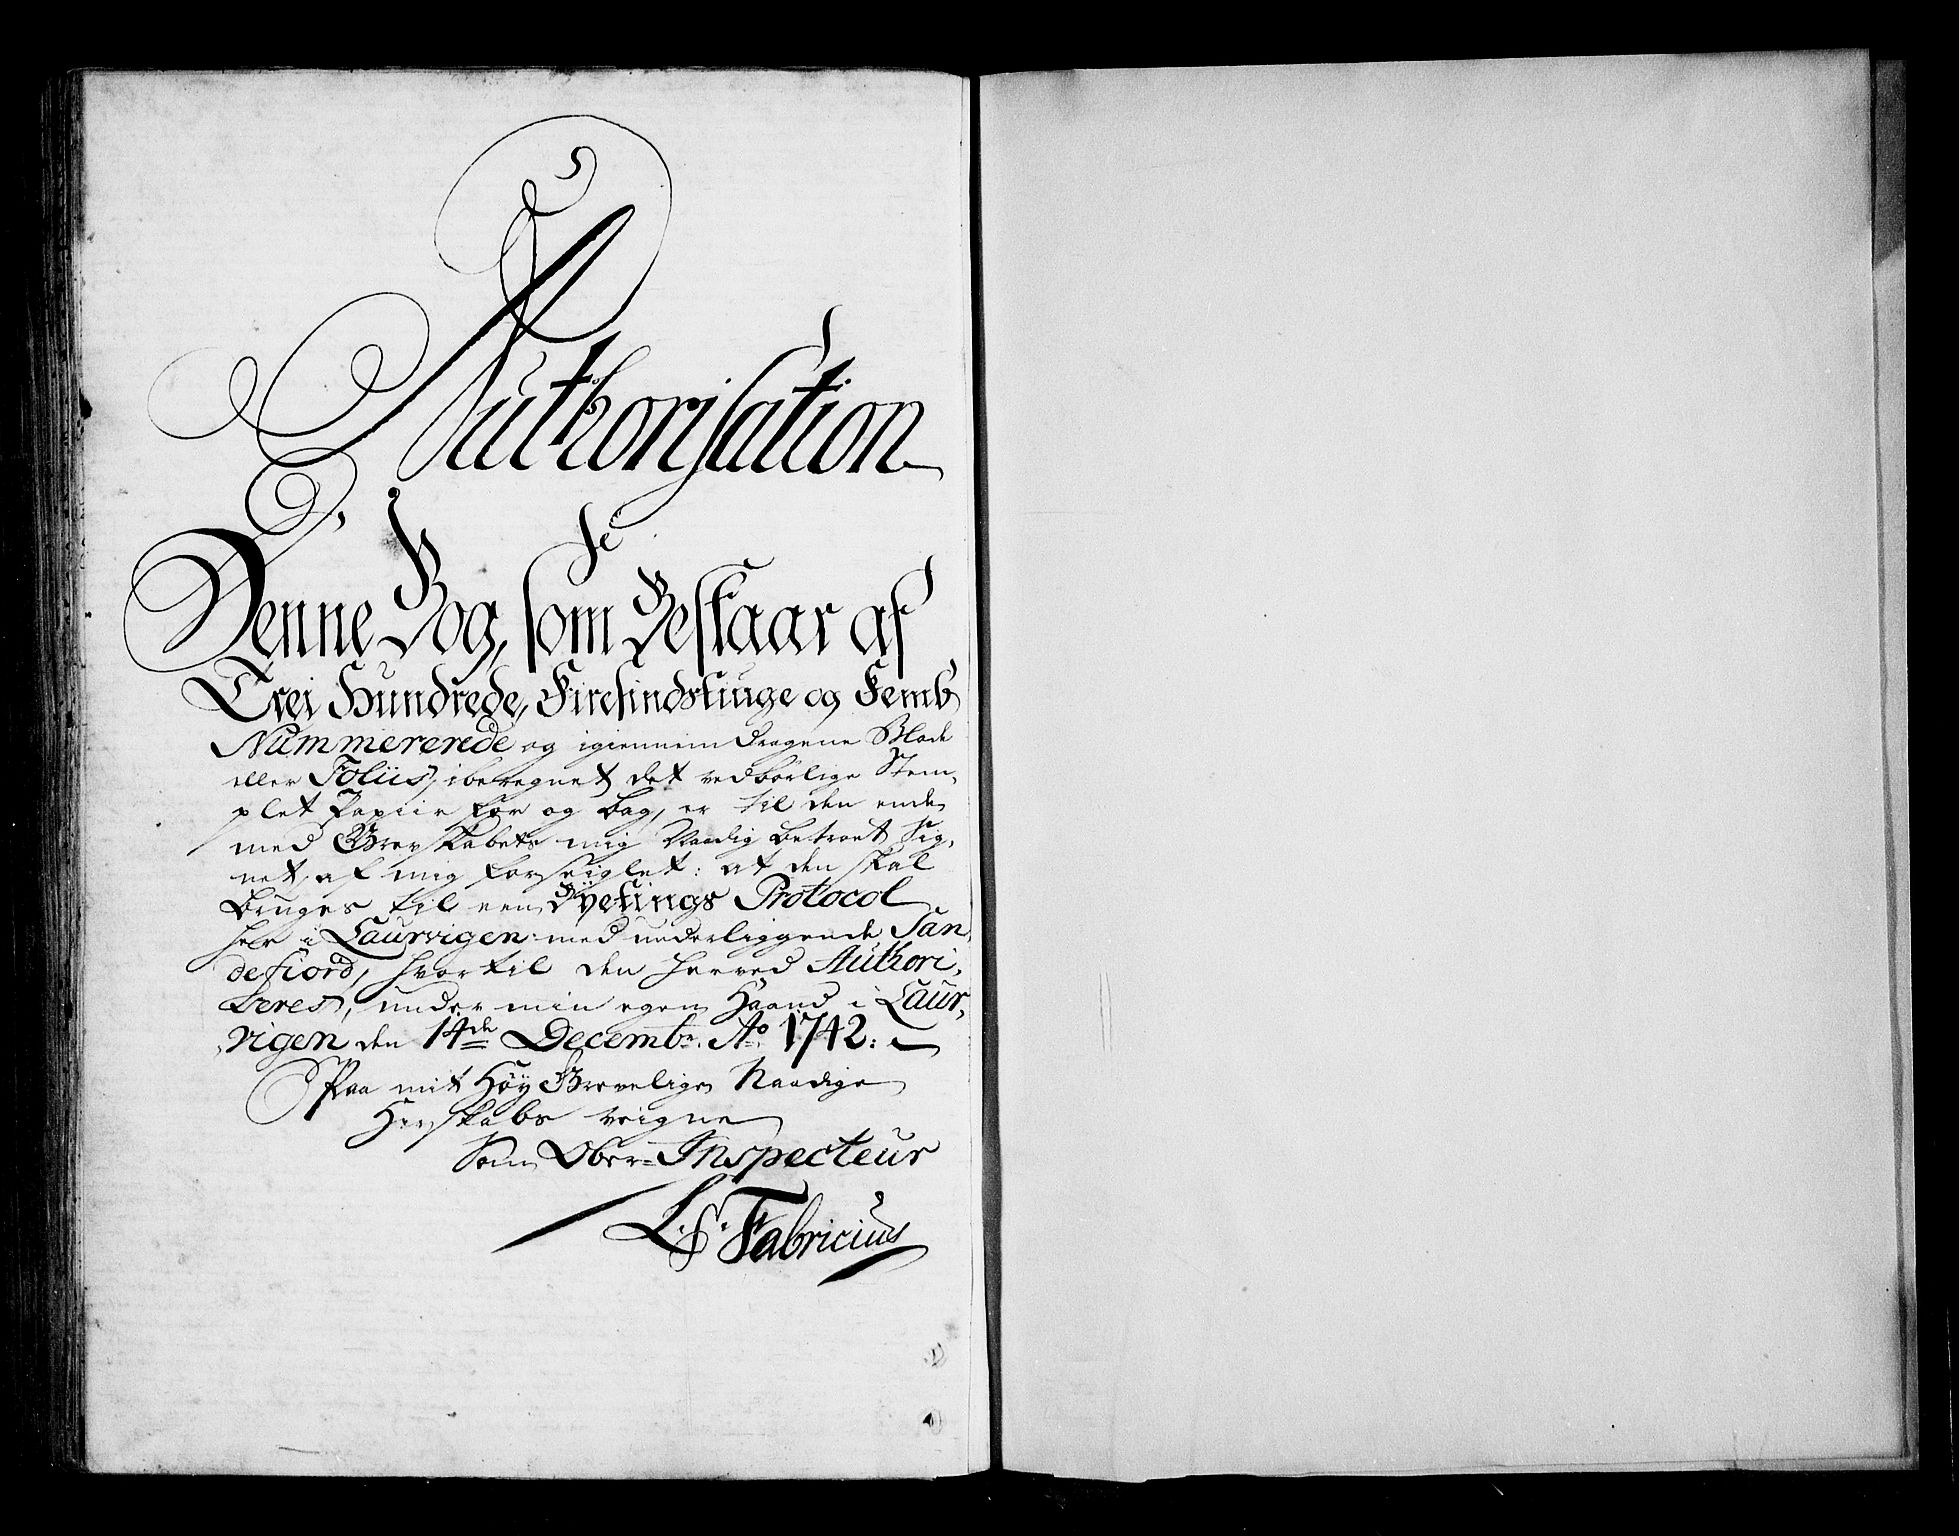 Authorisation
Denne Bog, som Bestaar af
Trei Hundrede, Firesindstiuge og Femb
Nummererede og igiennem dragene Blade
eller Foliis, iberegnet det vedbørlige Stem,
plet Papiir for og bag, er til den ende
med Grevskabets mig Naadig betroet Sig,
net, af mig forseiglet: at den skal
bruges til een Qvetings Protocol
her i Laurvigen med underliggende San,
defiord, hvortil den herved Authori,
seres, under min egen Haand i Laur,
vigen den 14de Decembr. Ao 1742:
Paa mit Høy Grevelige Naadige
Herskabs veigne
Som Ober-Inspecteur
L: S: Fabricius